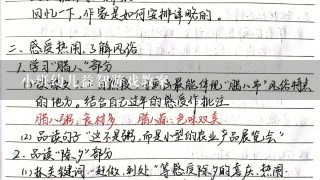 回忆一下，作家是如何安排详略的。
二、感受热闹，了解风俗
1. 学习“腊八”部分
最能体现“腊八节”风俗特点
的地方。结合自己过年的感受作批注
腊八粥：食材多 腊八蒜：色味双美
(2) 品读句子“这不是粥，而是小型的农业产品展览会”
2. 品读“除夕”部分
(1) 抓关键词 “赶做、到处”等感受除夕的喜庆、热闹
小班幼儿益智游戏教案